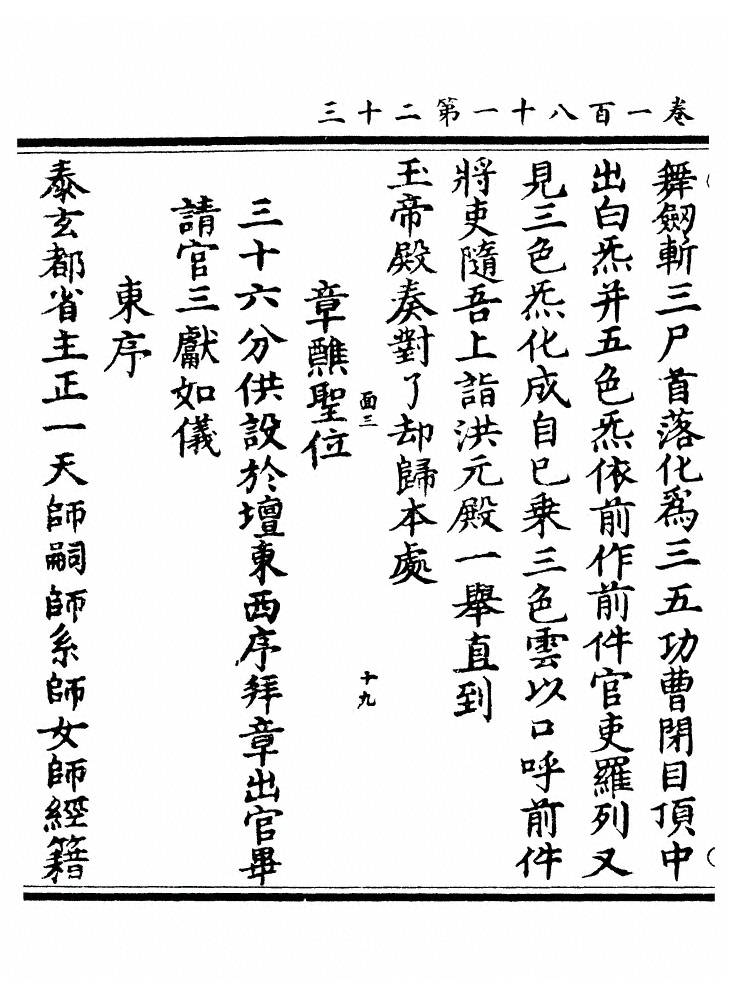 卷一百八十一第二十三
舞劒斬三尸首落化爲三五功曹閉目頂中
出白炁并五色炁依前作前件官吏羅列又
見三色炁化成自己乘三色雲以口呼前件
將吏隨吾上詣洪元殿一舉直到
玉帝殿奏對了却歸本處
面三
十九
章醮聖位
三十六分供設於壇東西序拜章出官畢
請官三獻如儀
東序
泰玄都省主正一天師嗣師系師女師經籍